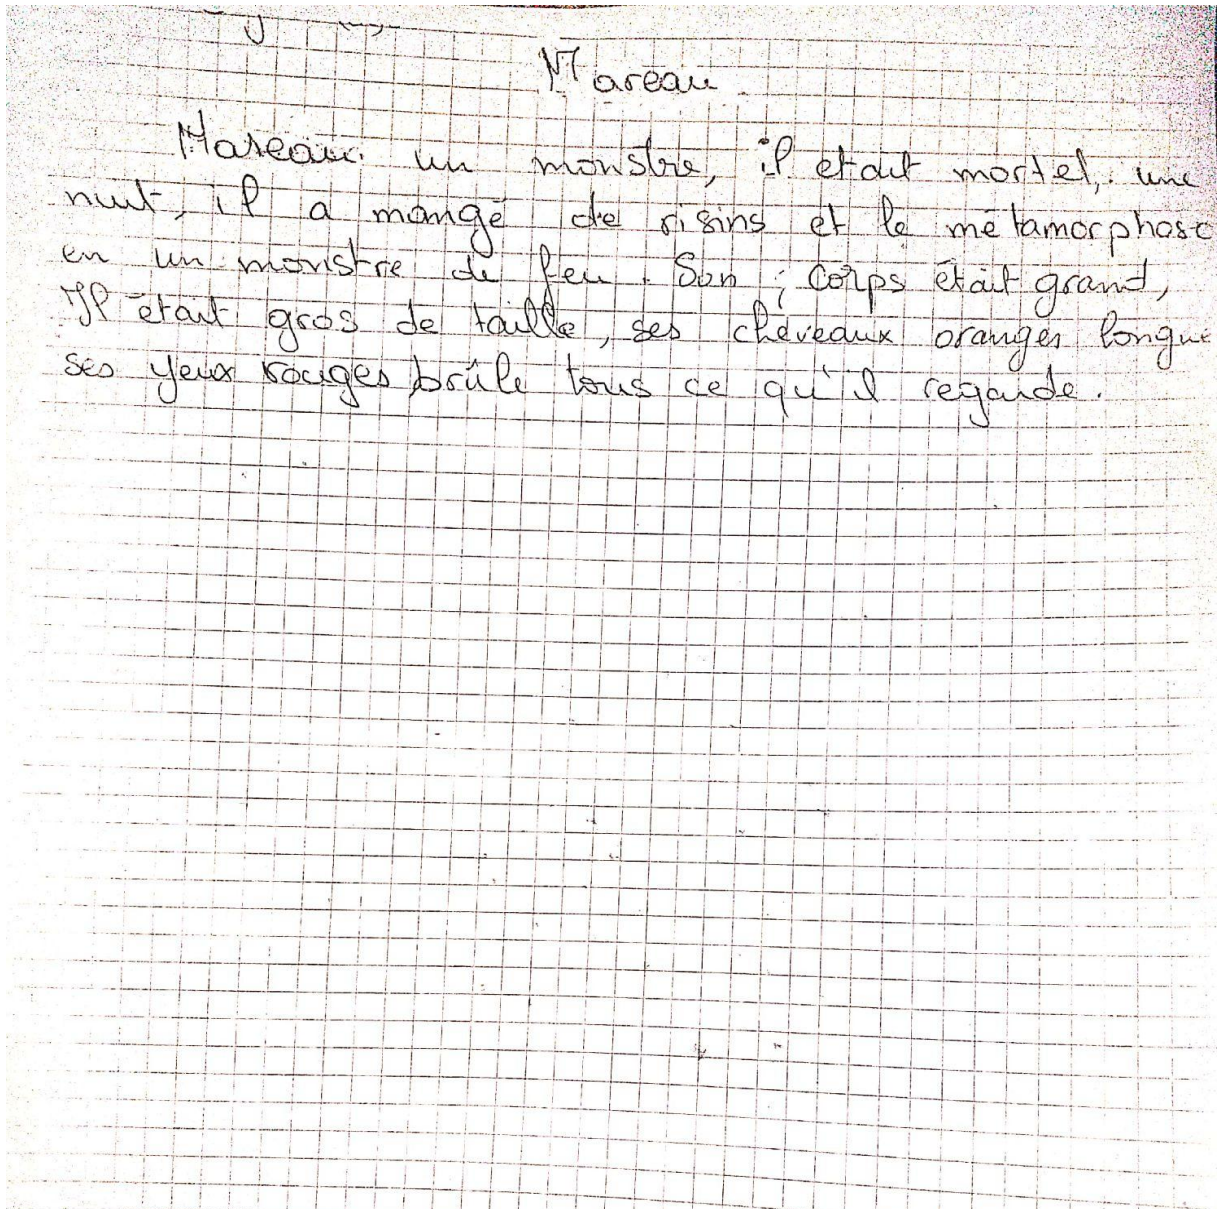 Mareau
Mareau un monstre, il etait mortel, une
nuit, il a mangé de risins et le métamorphose
en un monstre de feu. Son, corps était grand,
Il était gros de taille, ses cheveaux oranges longue
ses yeux rouges brûle tous ce qu'il regarde.